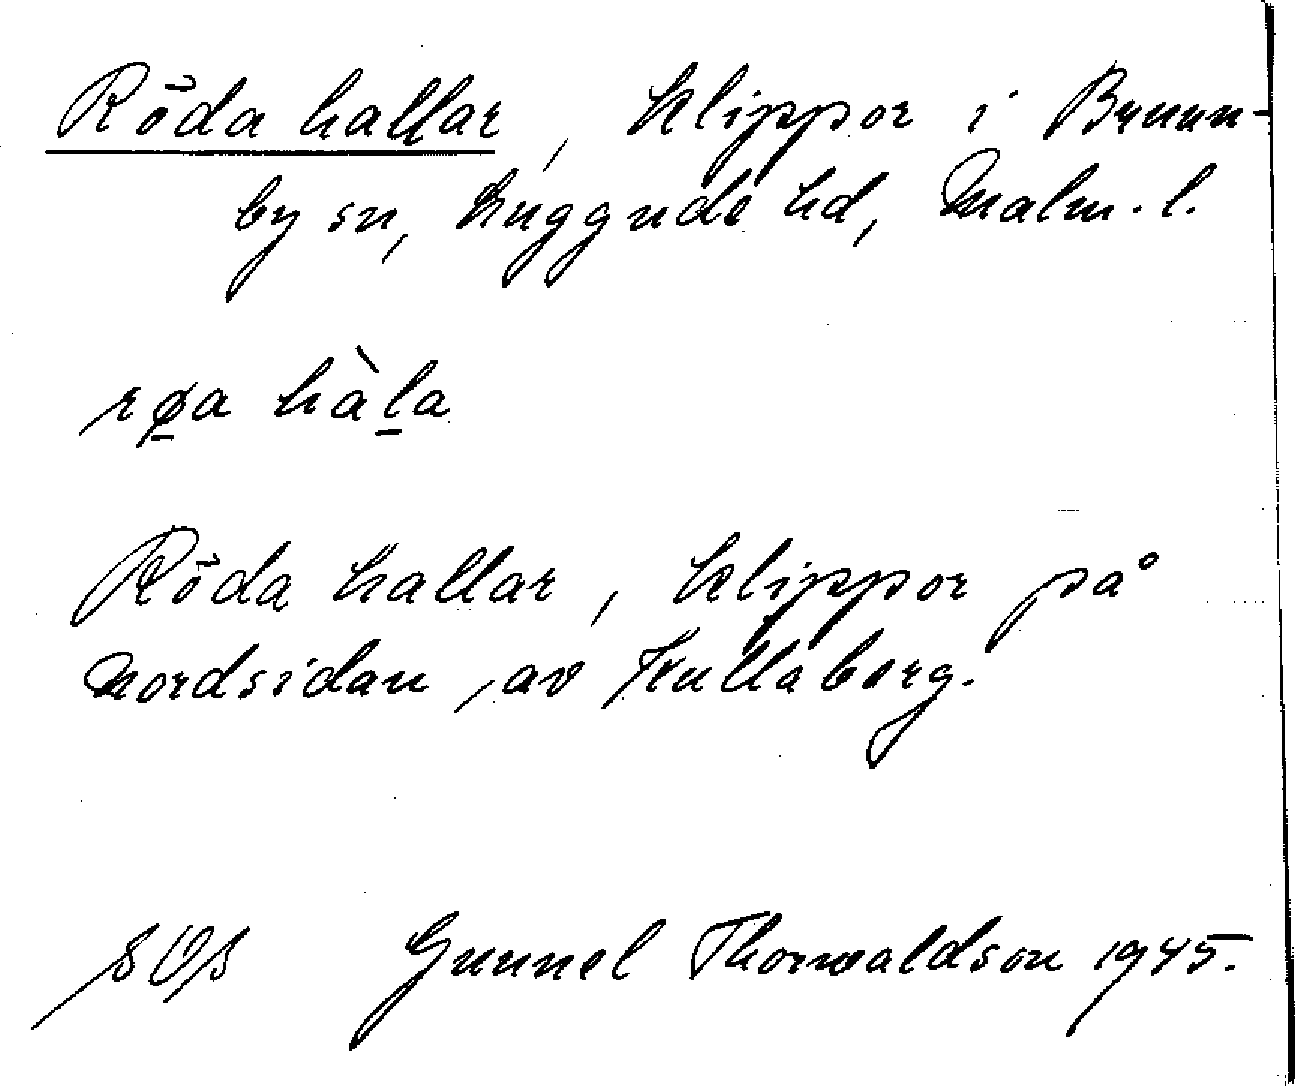 Röda hallar, klippor i Brunn-
by sn, Luggude hd, Malm. l.
rø̱a hàḻa
Röda hallar, klippor på
nordsidan av Kullaberg.
SOS Gunnel Thorwaldson 1945.